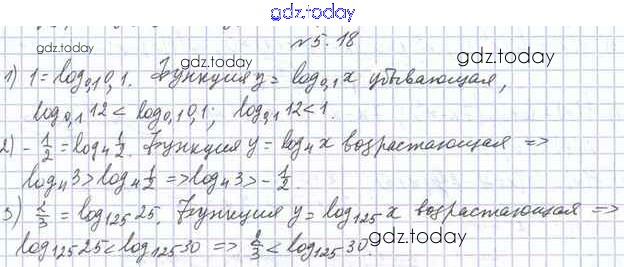 gdz.today
№5.18
gdz.today
1) 1 = log₀,₁0,1. Функция y = log₀,₁x убывающая,
log₀,₁12 < log₀,₁0,1; log₀,₁12 < 1.
2) -1/2 = log₄ 1/2. Функция y = log₄x возрастающая =>
log₄3 > log₄ 1/2 => log₄3 > -1/2.
gdz.today
3) 2/3 = log₁₂₅25. Функция y = log₁₂₅x возрастающая =>
log₁₂₅25 < log₁₂₅30 => 2/3 < log₁₂₅30.
gdz.today
gdz.today